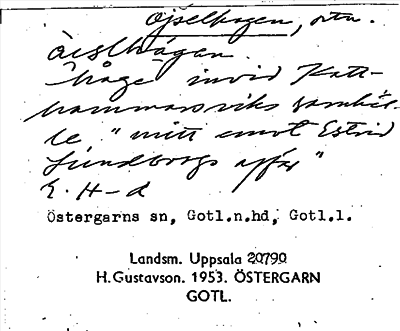 Öjselhagen, ortn.
öislhagen
"häge" invid Katt-
hammarsviks samhäl-
le "mitt emot Estrid
Sundbergs affär"
E. H-d
Östergarns sn, Gotl.n.hd, Gotl.l.
Landsm. Uppsala 20790
H. Gustavson. 1953. ÖSTERGARN
GOTL.